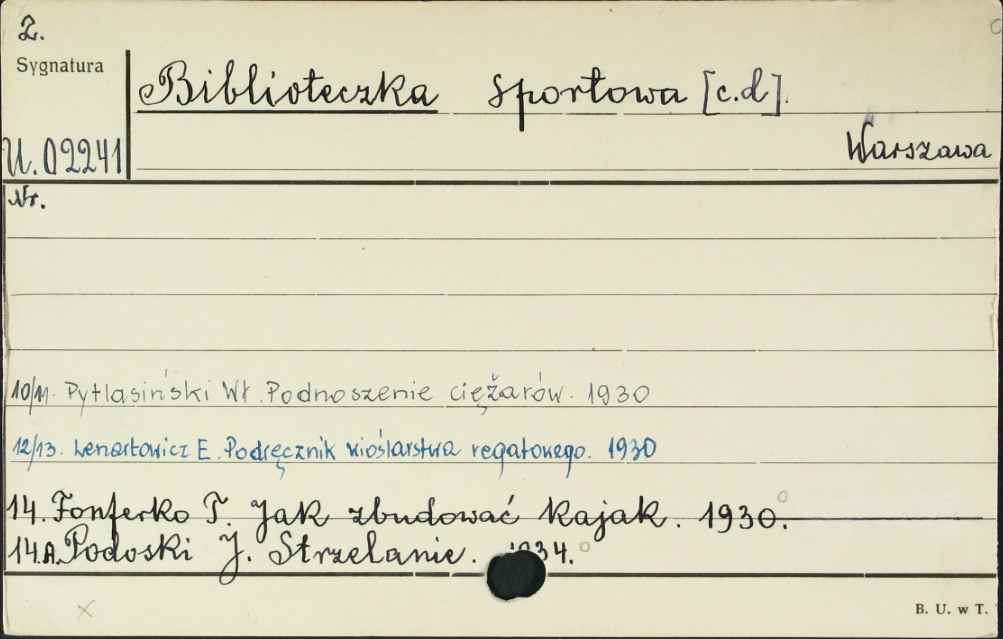 2.
Sygnatura
Biblioteczka sportowa [c.d].
U.02241
Warszawa
Nr.
10/11. Pytlasiński Wł. Podnoszenie ciężarów. 1930
12/13. Lenartowicz E. Podręcznik wioślarstwa regatowego. 1930
14. Fonferko T. Jak zbudować kajak. 1930.
14A. Podoski J. Strzelanie. 1934.
B. U. w T.